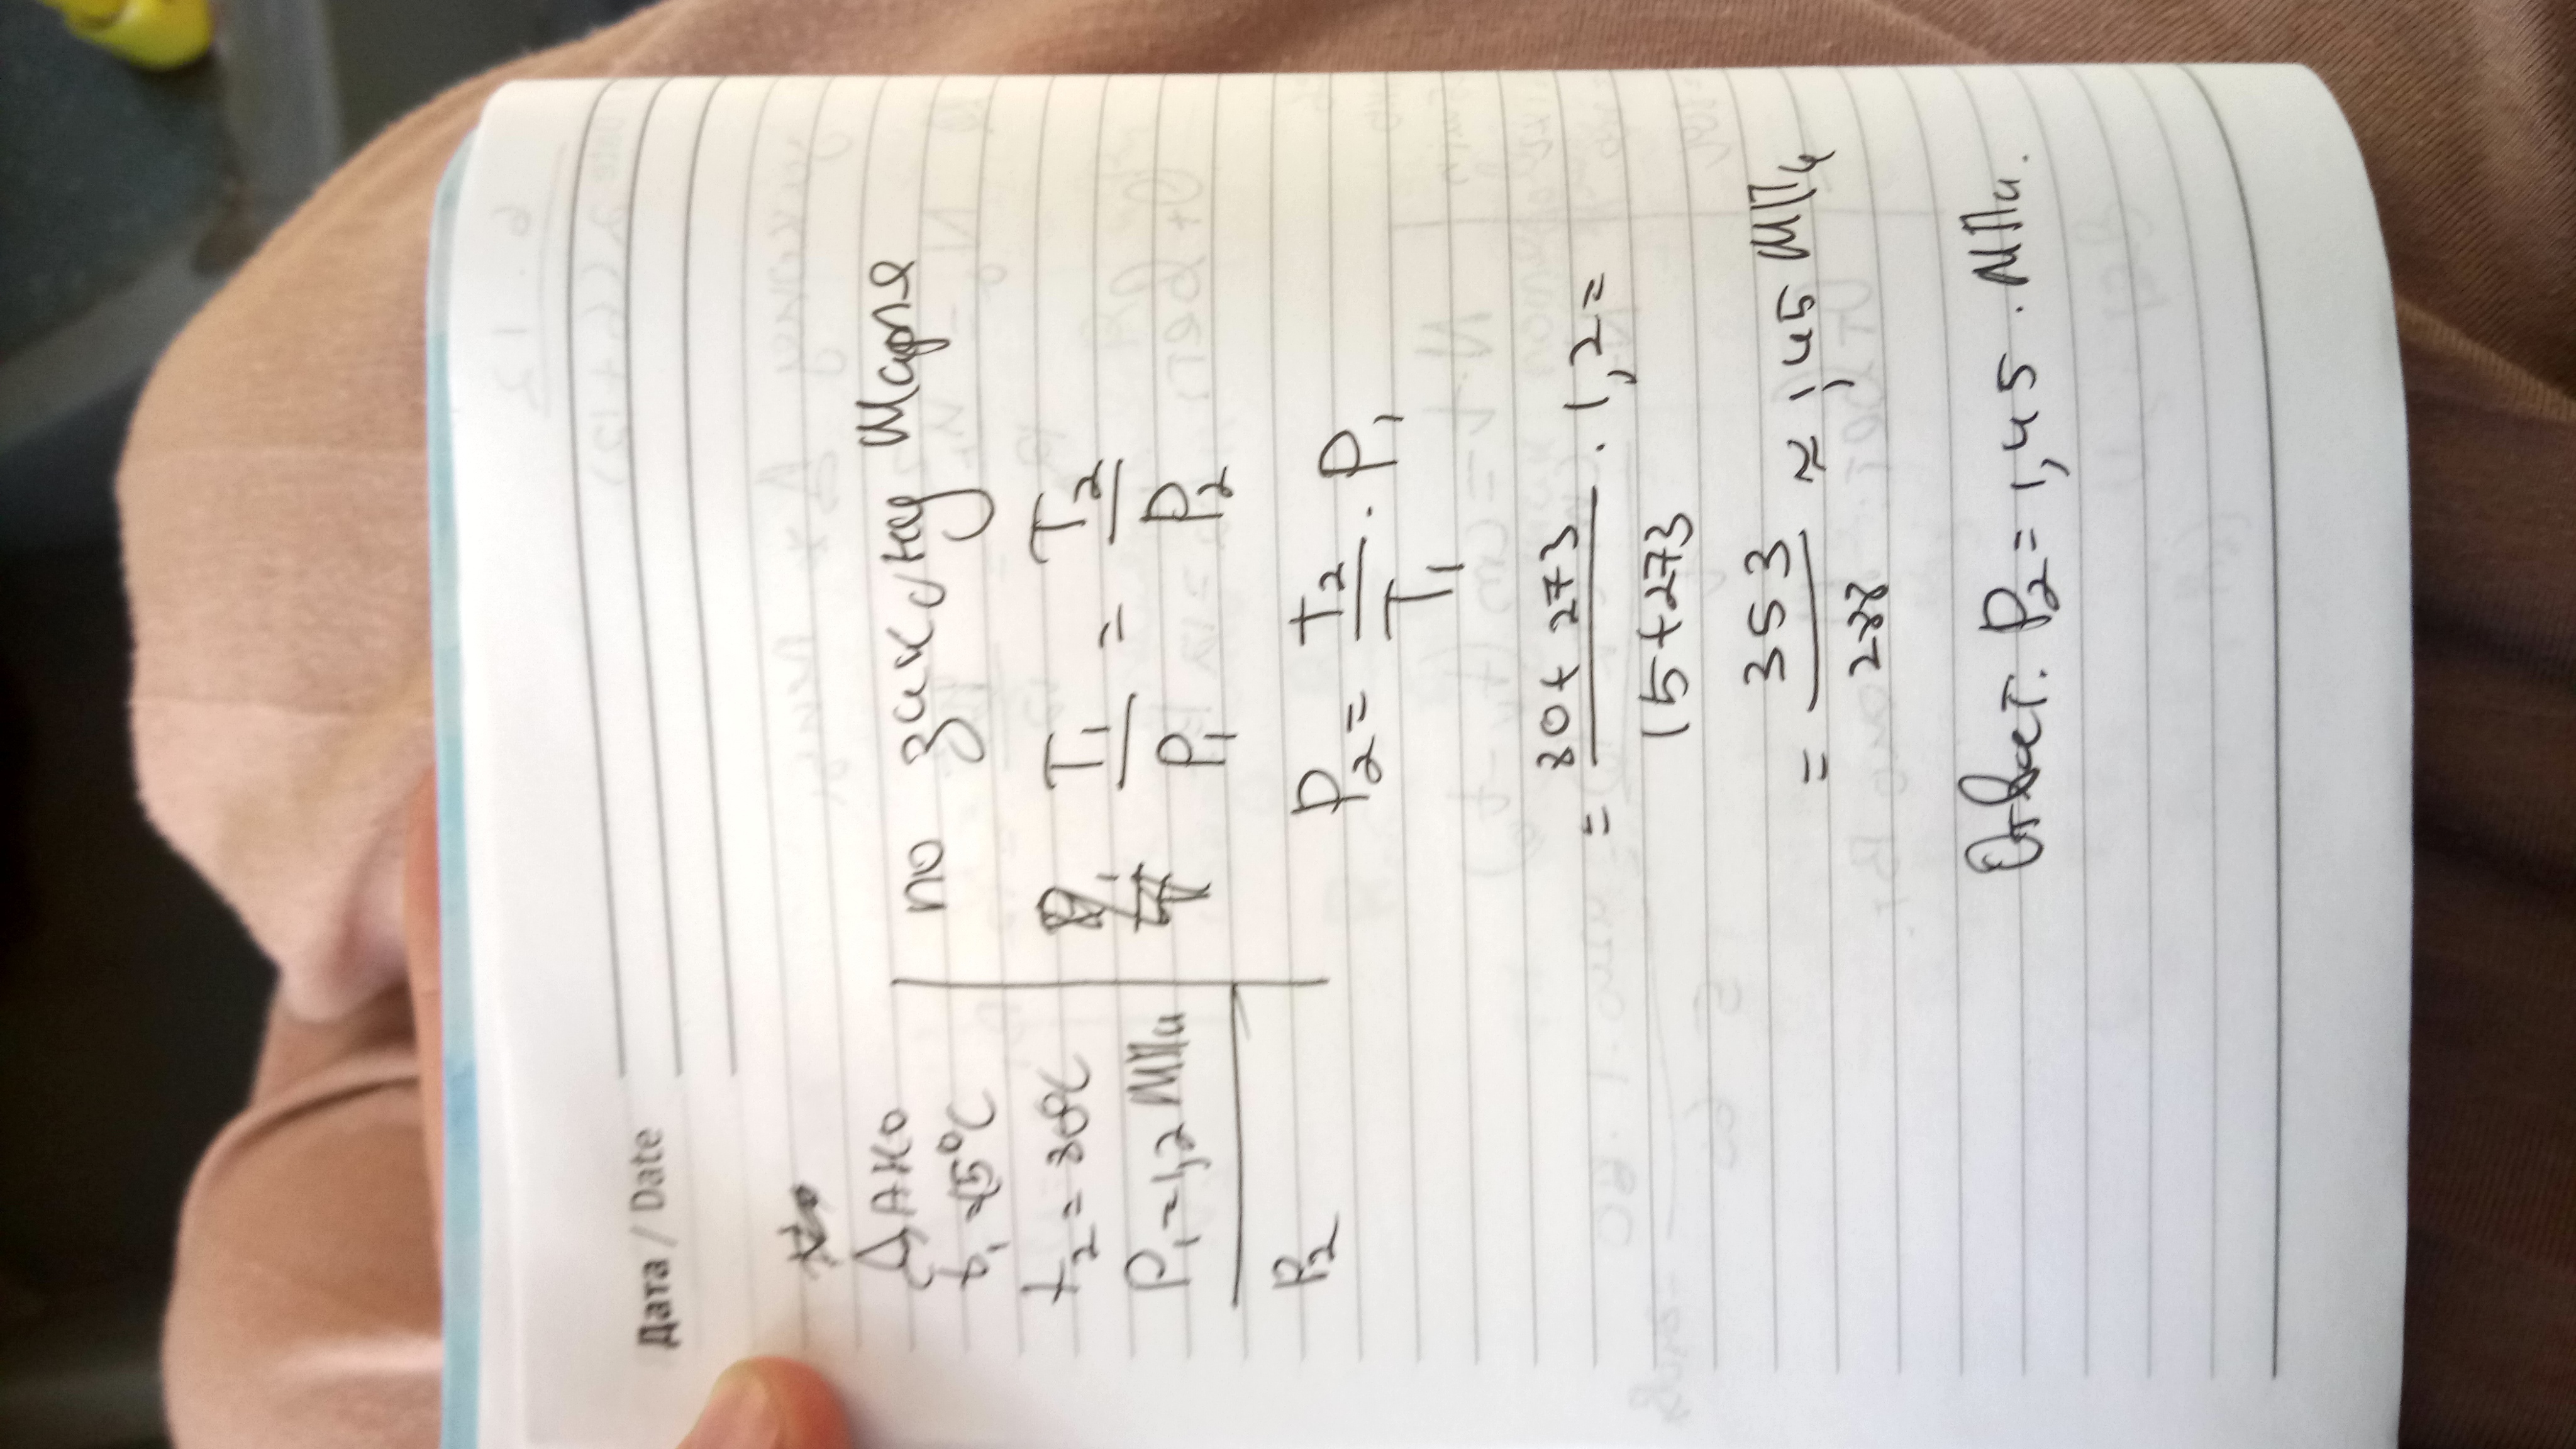 Дата / Date
Дано
t₁ = 15°C
t₂ = 80°C
P₁ = 1,2 МПа
P₂
по закону Шарля
T₁/P₁ = T₂/P₂
P₂ = T₂/T₁ · P₁
= 80+273/15+273 · 1,2 =
= 353/288 ≈ 1,45 МПа
Ответ: P₂ = 1,45 · МПа.